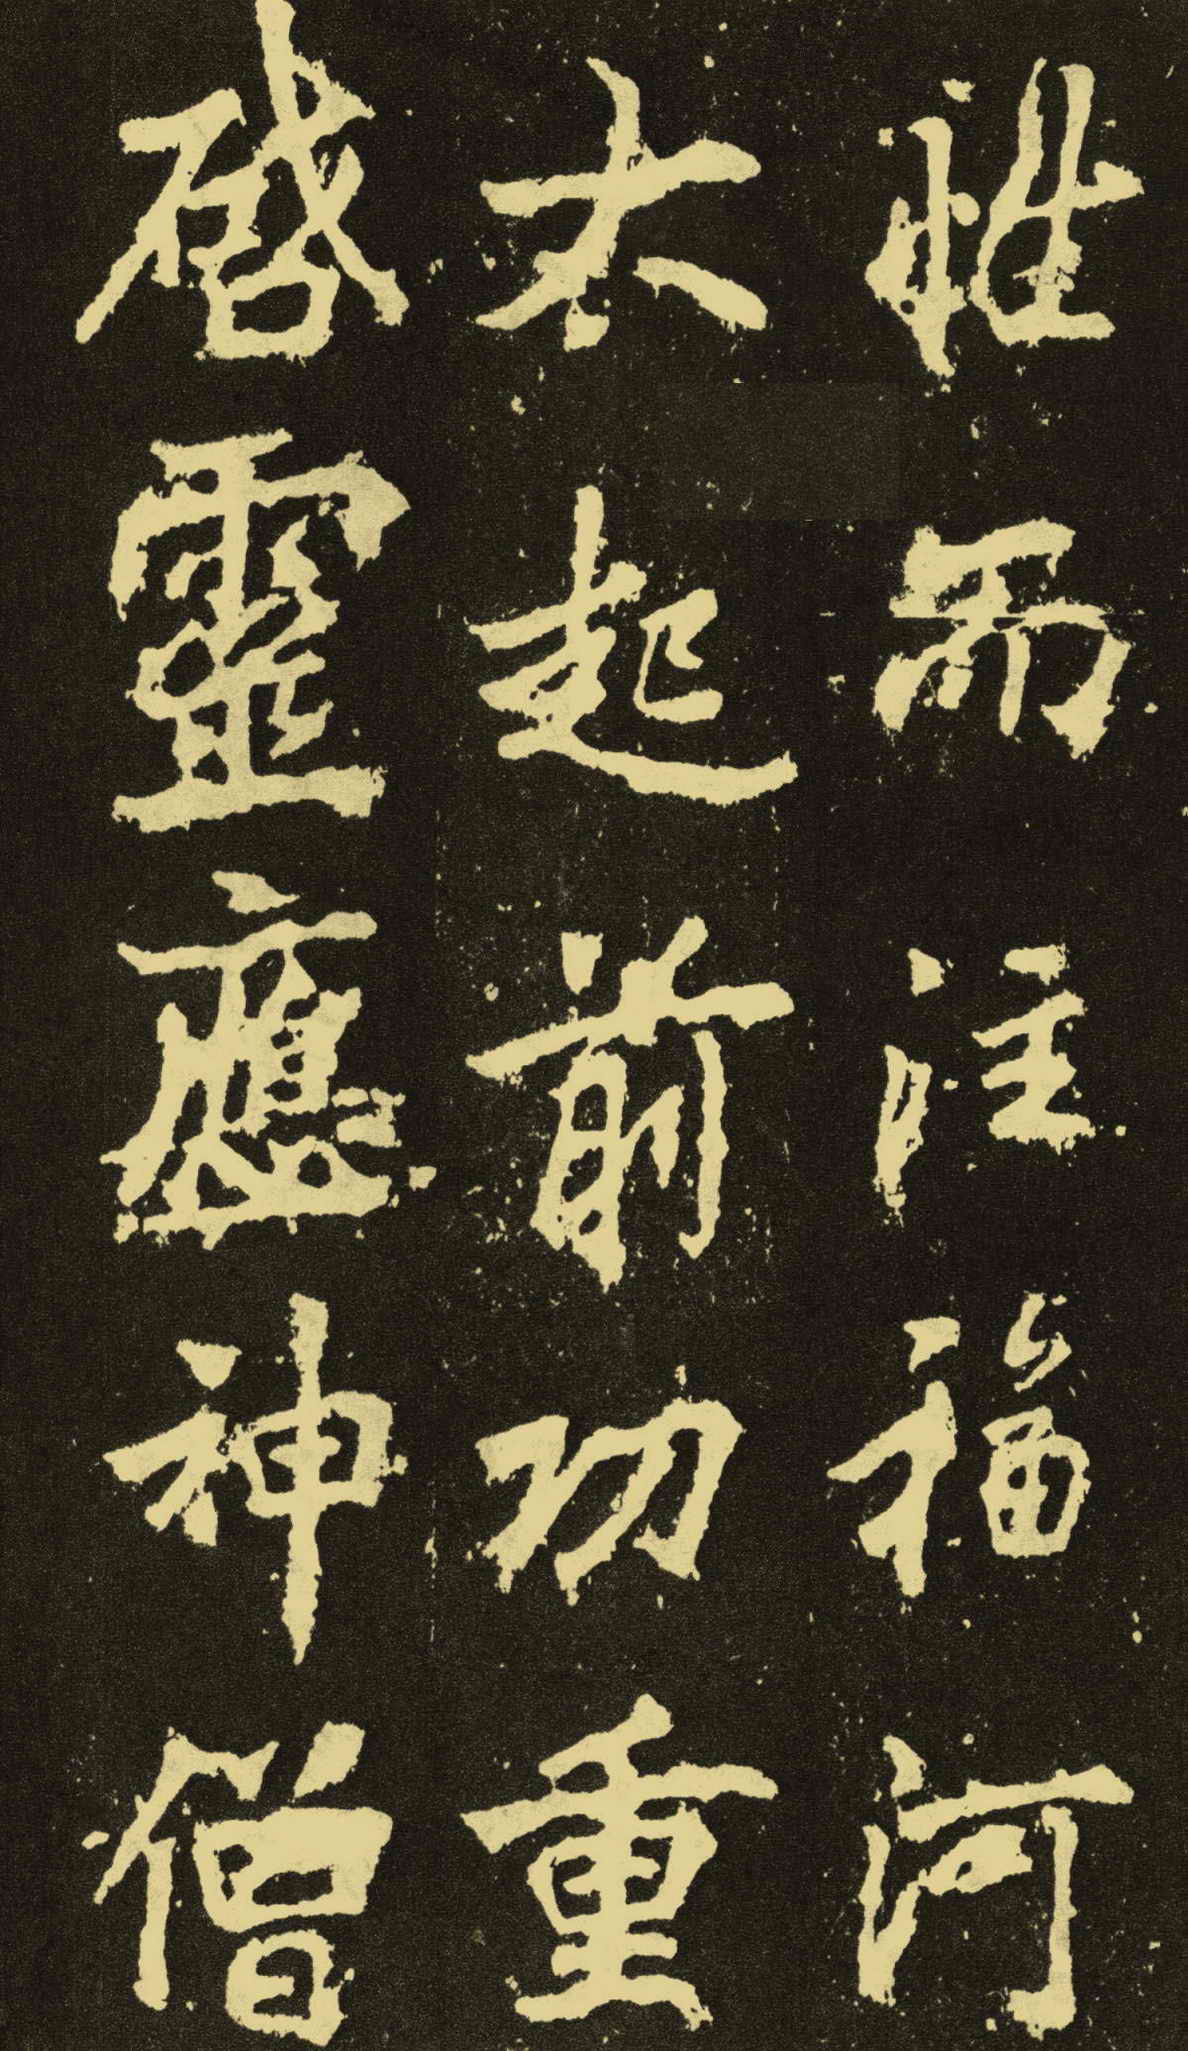 性而注福河
大起前功重
啓靈應神僧